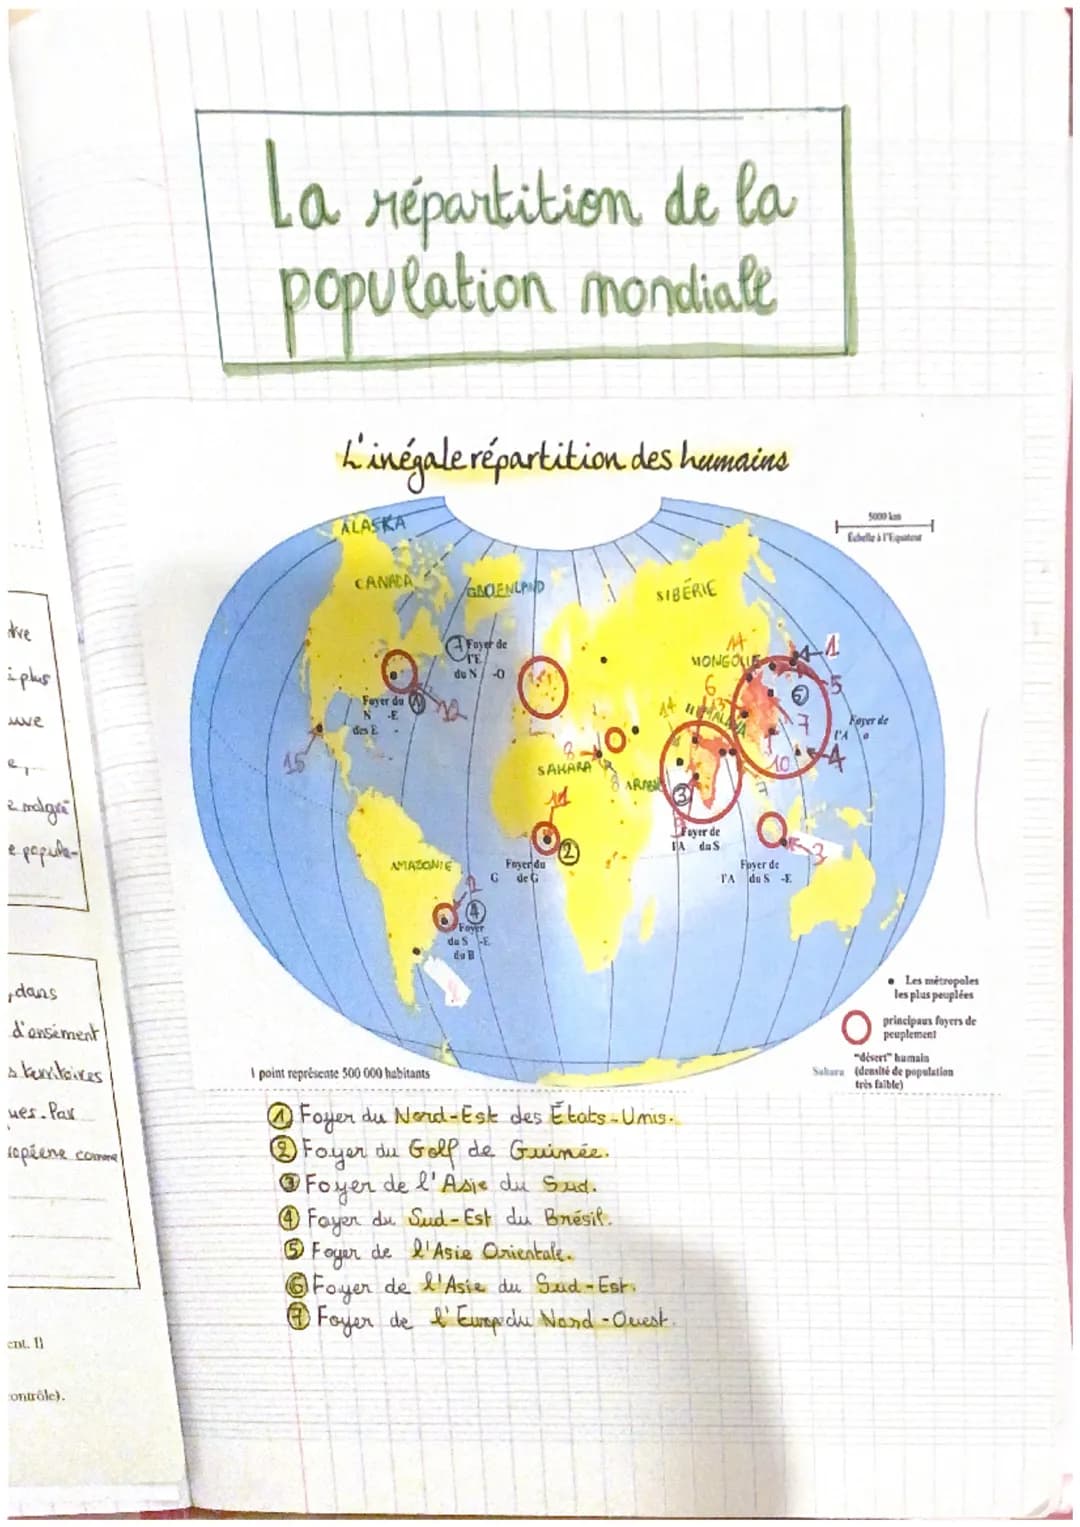 La répartition de la
population mondiale
L'inégale répartition des humains
5000 km
Échelle à l'Equateur
ALASKA
CANADA
GROENLAND
SIBÉRIE
7 Foyer de
l'E
du N -O
MONGOLIE
14
1
5
6
13
14
HIMALAYA
5
7
Foyer de
l'A o
Foyer du 1
N -E
des E -
12
15
8
SAHARA
8
ARABIE
10
4
7
3
11
2
Foyer de
l'A du S
3
AMAZONIE
Foyer du
G de G
Foyer de
l'A du S -E
2
4
Foyer
du S -E
du B
Les métropoles
les plus peuplées
principaux foyers de
peuplement
"désert" humain
Sahara (densité de population
très faible)
1 point représente 500 000 habitants
1 Foyer du Nord-Est des États-Unis.
2 Foyer du Golf de Guinée.
3 Foyer de l'Asie du Sud.
4 Foyer du Sud-Est du Brésil.
5 Foyer de l'Asie Orientale.
6 Foyer de l'Asie du Sud-Est.
7 Foyer de l'Europ du Nord-Ouest.
plus
uve
e,
malgré
e popula-
, dans
d'ensement
s territoires
ues. Par
ropéene comme
ent. Il
contrôle).